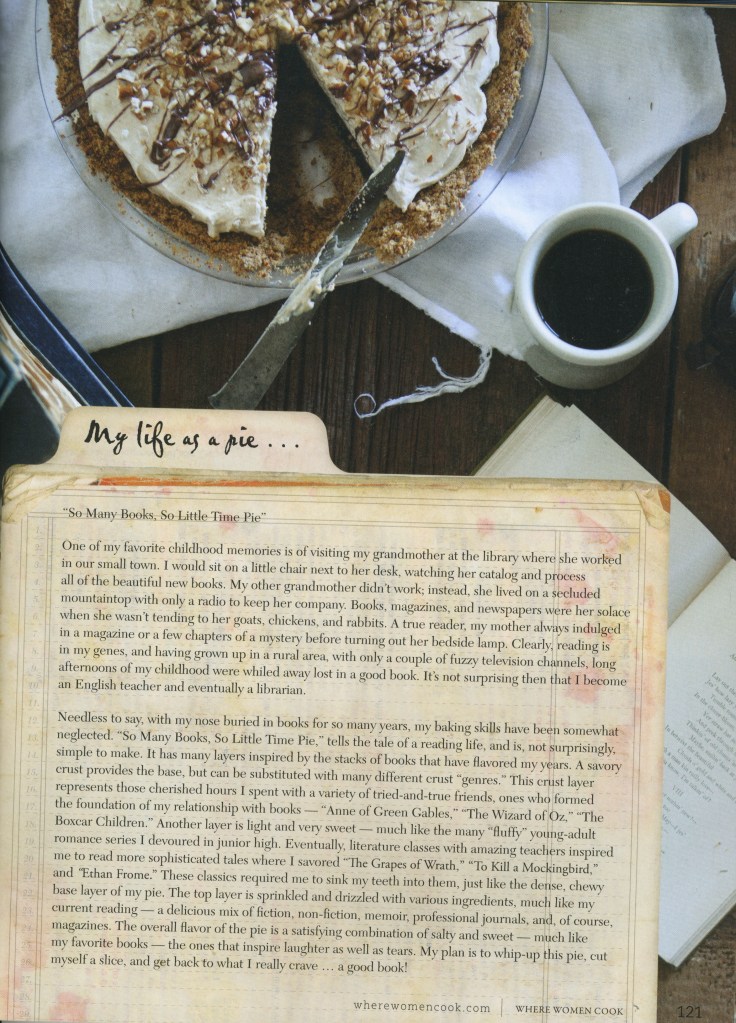 My life as a pie . . .
"So Many Books, So Little Time Pie"
One of my favorite childhood memories is of visiting my grandmother at the library where she worked
in our small town. I would sit on a little chair next to her desk, watching her catalog and process
all of the beautiful new books. My other grandmother didn't work; instead, she lived on a secluded
mountaintop with only a radio to keep her company. Books, magazines, and newspapers were her solace
when she wasn't tending to her goats, chickens, and rabbits. A true reader, my mother always indulged
in a magazine or a few chapters of a mystery before turning out her bedside lamp. Clearly, reading is
in my genes, and having grown up in a rural area, with only a couple of fuzzy television channels, long
afternoons of my childhood were whiled away lost in a good book. It's not surprising then that I become
an English teacher and eventually a librarian.
Needless to say, with my nose buried in books for so many years, my baking skills have been somewhat
neglected. "So Many Books, So Little Time Pie," tells the tale of a reading life, and is, not surprisingly,
simple to make. It has many layers inspired by the stacks of books that have flavored my years. A savory
crust provides the base, but can be substituted with many different crust "genres." This crust layer
represents those cherished hours I spent with a variety of tried-and-true friends, ones who formed
the foundation of my relationship with books — "Anne of Green Gables," "The Wizard of Oz," "The
Boxcar Children." Another layer is light and very sweet — much like the many "fluffy" young-adult
romance series I devoured in junior high. Eventually, literature classes with amazing teachers inspired
me to read more sophisticated tales where I savored "The Grapes of Wrath," "To Kill a Mockingbird,"
and "Ethan Frome." These classics required me to sink my teeth into them, just like the dense, chewy
base layer of my pie. The top layer is sprinkled and drizzled with various ingredients, much like my
current reading — a delicious mix of fiction, non-fiction, memoir, professional journals, and, of course,
magazines. The overall flavor of the pie is a satisfying combination of salty and sweet — much like
my favorite books — the ones that inspire laughter as well as tears. My plan is to whip-up this pie, cut
myself a slice, and get back to what I really crave … a good book!
wherewomencook.com | WHERE WOMEN COOK 121